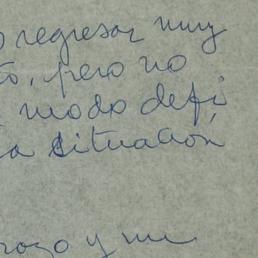 o regresar muy
to, pero no
modo defi
a situación
razo y mi